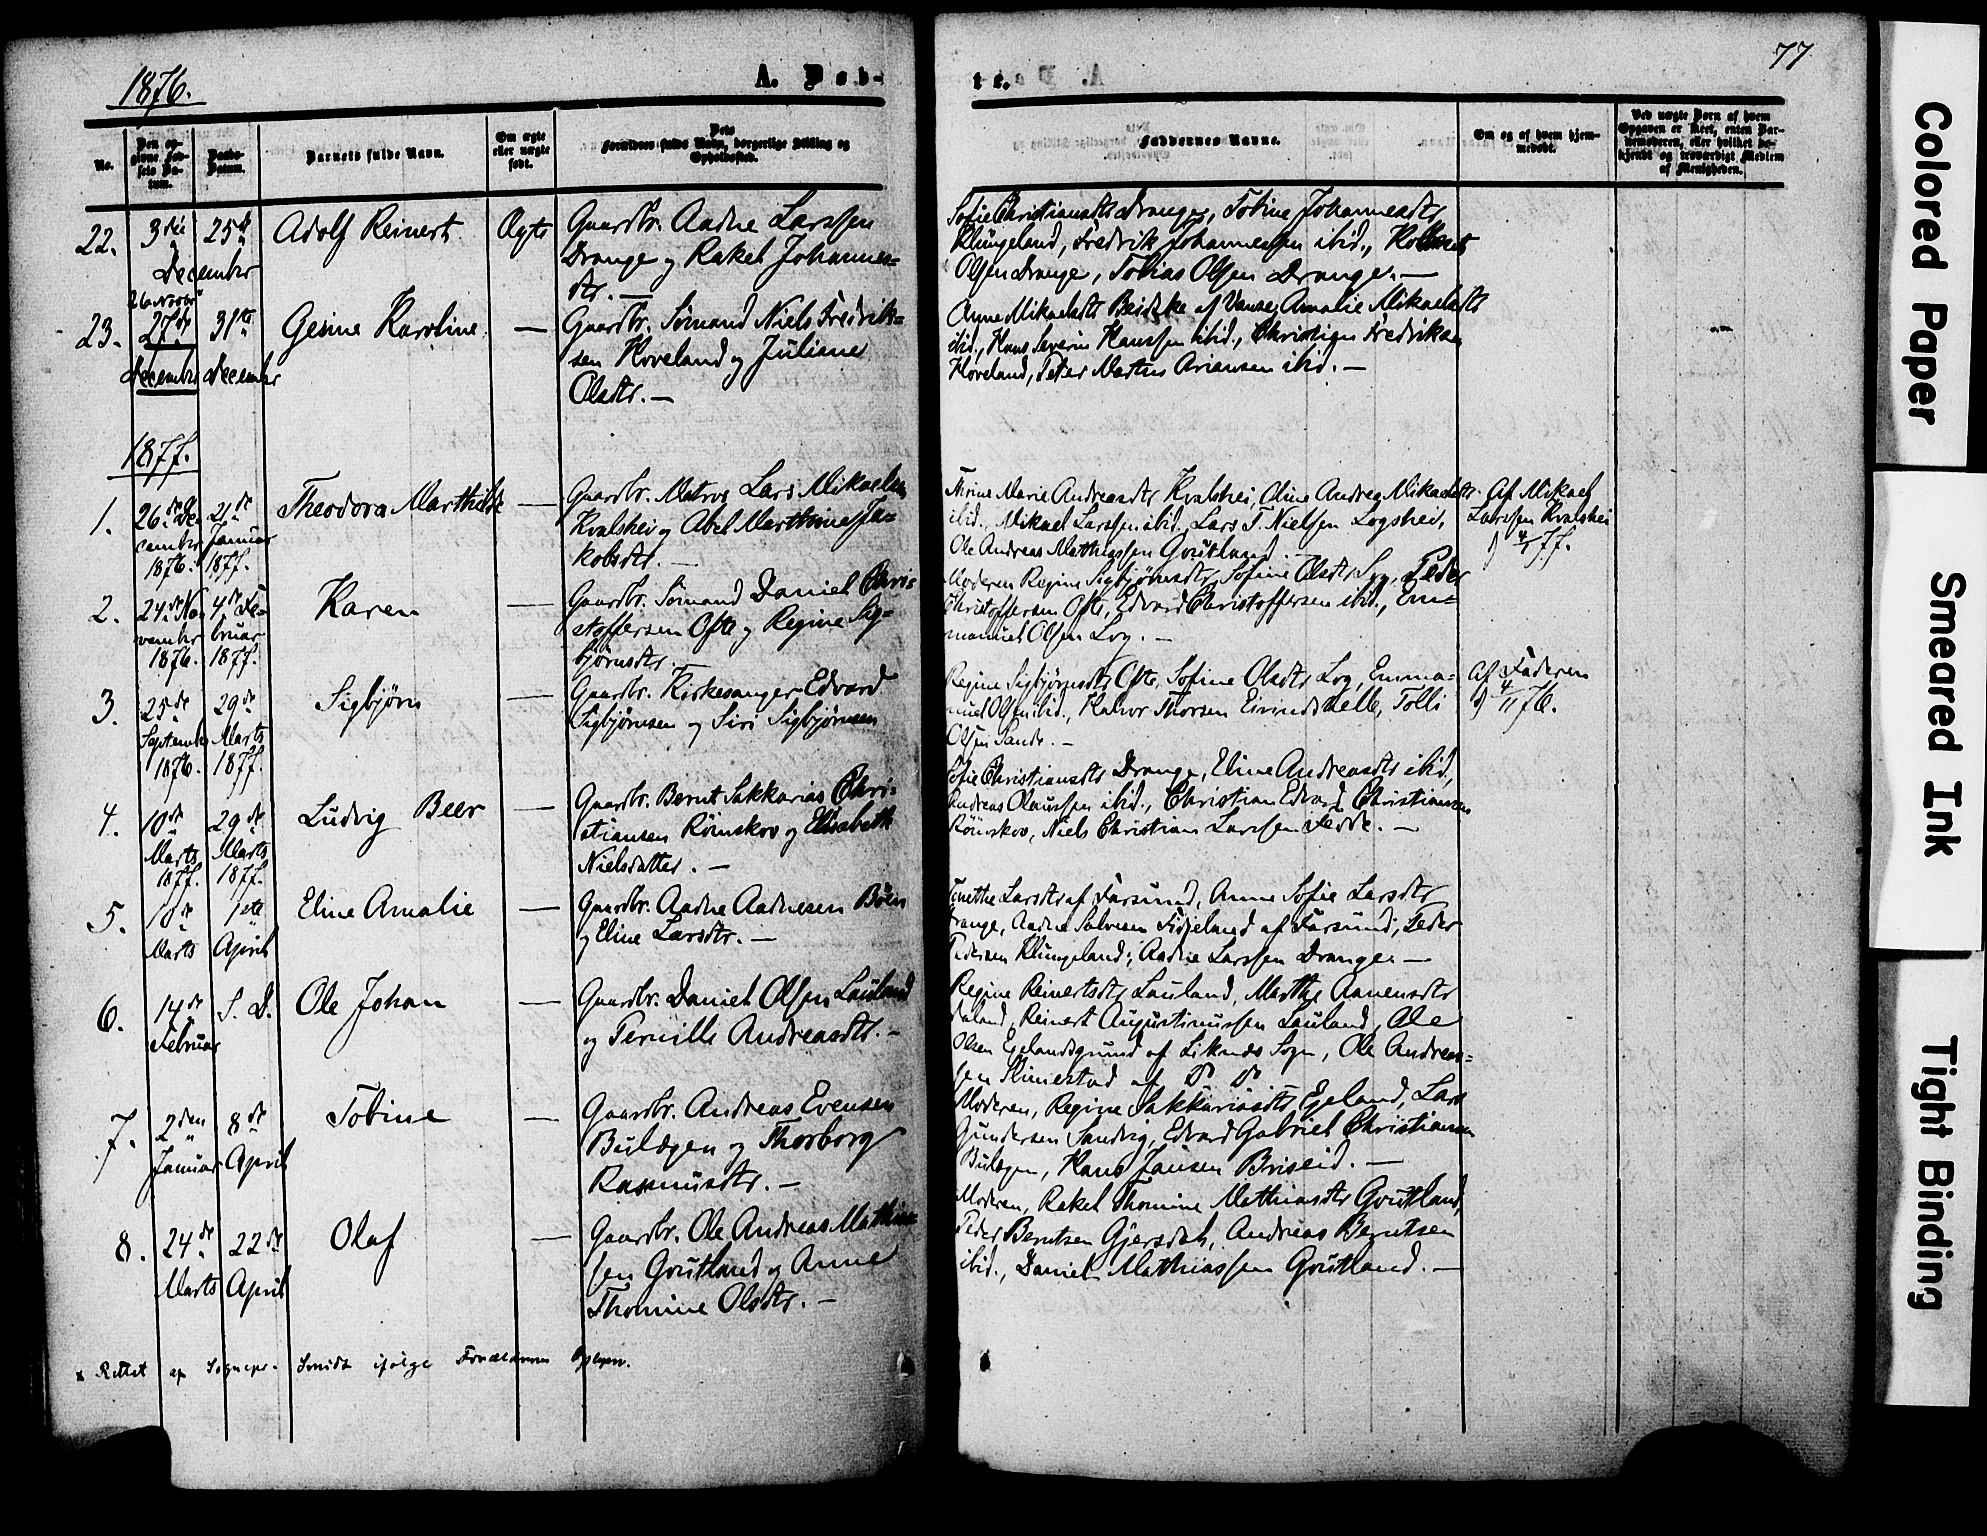 1876.
A. Døb-
te.
77
No.
Den opgivne Fødsels Datum.
Daabs-Datum.
Barnets fulde Navn.
Om ægte eller uægte født.
Forældres fulde Navn, borgerlige Stilling og Opholdssted.
Faddernes Navne.
Om og af hvem hjemmedøbt.
Ved uægte Børn af hvem Opgaven er skeet, enten Barnemoderen, eller hvilket bekjendt og troværdigt Medlem af Menigheden.
22. 3die December 25de Adolf Reinert Ægte
Gaardbr. Aadne Larssen
Drange og Rakel Johannes=
dtr. —
Sofie Christiansdtr Drange, Tobine Johannesdtr
Klungeland, Fredrik Johannessen ibid.,
Olsen Drange, Tobias Olsen Drange. —
23. 26 Novbr 27de December 31te December Gesine Karoline —
Gaardbr. Sømand Niels Fredrik=
sen Hoveland og Juliane
Olsdtr. —
Anne Mikaelsdtr Beidtke af Vanse, Amalie Mikaelsdtr
ibid., Hans Severin Hanssen ibid., Christign Fredriksen
Hoveland, Peter Martin Ariansen ibid. —
1877.
1. 26de December 1876. 21de Januar 1877. Theodora Marthilde —
Gaardbr. Matros Lars Mikaelsen
Kvalshei og Abel Marthine Ja=
kobsdtr. —
Thrine Marie Andreasdtr Kvalshei, Oline Andrea Mikaelsdtr
ibid., Mikael Larssen ibid., Lars T. Nielsen Logshei,
Ole Andreas Matthiassen Grutland. —
Af Mikael
Larssen Kvalshei
d 4/1 77.
2. 24de November 1876. 4de Februar 1877. Karen —
Gaardbr. Sømand Daniel Chri=
stoffersen Ofte og Regine Sig=
bjørnsdtr. —
Moderen Regine Sigbjørnsdtr, Sofine Olsdtr Log, Peder
Christoffersen Ofte, Edvard Christoffersen ibid., Em=
manuel Olsen Log. —
3. 25de September 1876. 29de Marts 1877. Sigbjørn —
Gaardbr. Kirkesanger Edvard
Sigbjørnsen og Siri Sigbjørnsen
Regine Sigbjørnsdtr Ofte, Sofine Olsdtr Log, Emma=
nuel Olsen ibid., Halvor Thorsen Eivindshelle, Tolli
Olsen Sande. —
Af Faderen
d 4/11 76.
4. 10de Marts 1877. 29de Marts 1877. Ludvig Beer —
Gaardbr. Bernt Sakkarias Chri=
stiansen Römskov og Elisabeth
Nielsdatter. —
Sofie Christiansdtr Drange, Eline Andreasdtr ibid.,
Andreas Olaussen ibid., Christian Edvard Christiansen
Römskov, Niels Christian Larssen Fedde. —
5. 10de Marts 1ste April Eline Amalie —
Gaardbr. Aadne Aadnesen Böen
og Eline Larsdtr. —
Tonette Larsdtr af Farsund, Anne Sofie Larsdtr
Drange, Aadne Salvesen Fidjeland af Farsund, Peder
Pedersen Klungeland, Aadne Larssen Drange. —
6. 14de Februar S. D. Ole Johan —
Gaardbr. Daniel Olsen Lauland
og Pernille Andreasdtr. —
Regine Reinertsdtr Lauland, Marthe Aanensdtr
Aaland, Reinert Augustinussen Lauland, Ole
Olsen Egelandsgrund af Liknæs Sogn, Ole Andreas=
sen Slimestad af Do Do
7. 2den Januar 8de April Tobine —
Gaardbr. Andreas Evensen
Bulægen og Thorborg
Rasmusdtr. —
Moderen, Regine Sakkariasdtr Egeland, Lars
Gundersen Sandvig, Edvard Gabriel Christiansen
Bulægen, Hans Jansen Briseid. —
8. 24de Marts 22de April Olaf —
Gaardbr. Ole Andreas Mathias=
sen Grutland og Anne
Thomine Olsdtr. —
Moderen, Rakel Thomine Mathiasdtr Grutland,
Peder Berntsen Gjersdal, Andreas Berntsen
ibid., Daniel Mathiassen Grutland. —
x Rettet af Sognepr. Smidt ifølge Forældrenes Opgave.
Colored Paper
Smeared Ink
Tight Binding